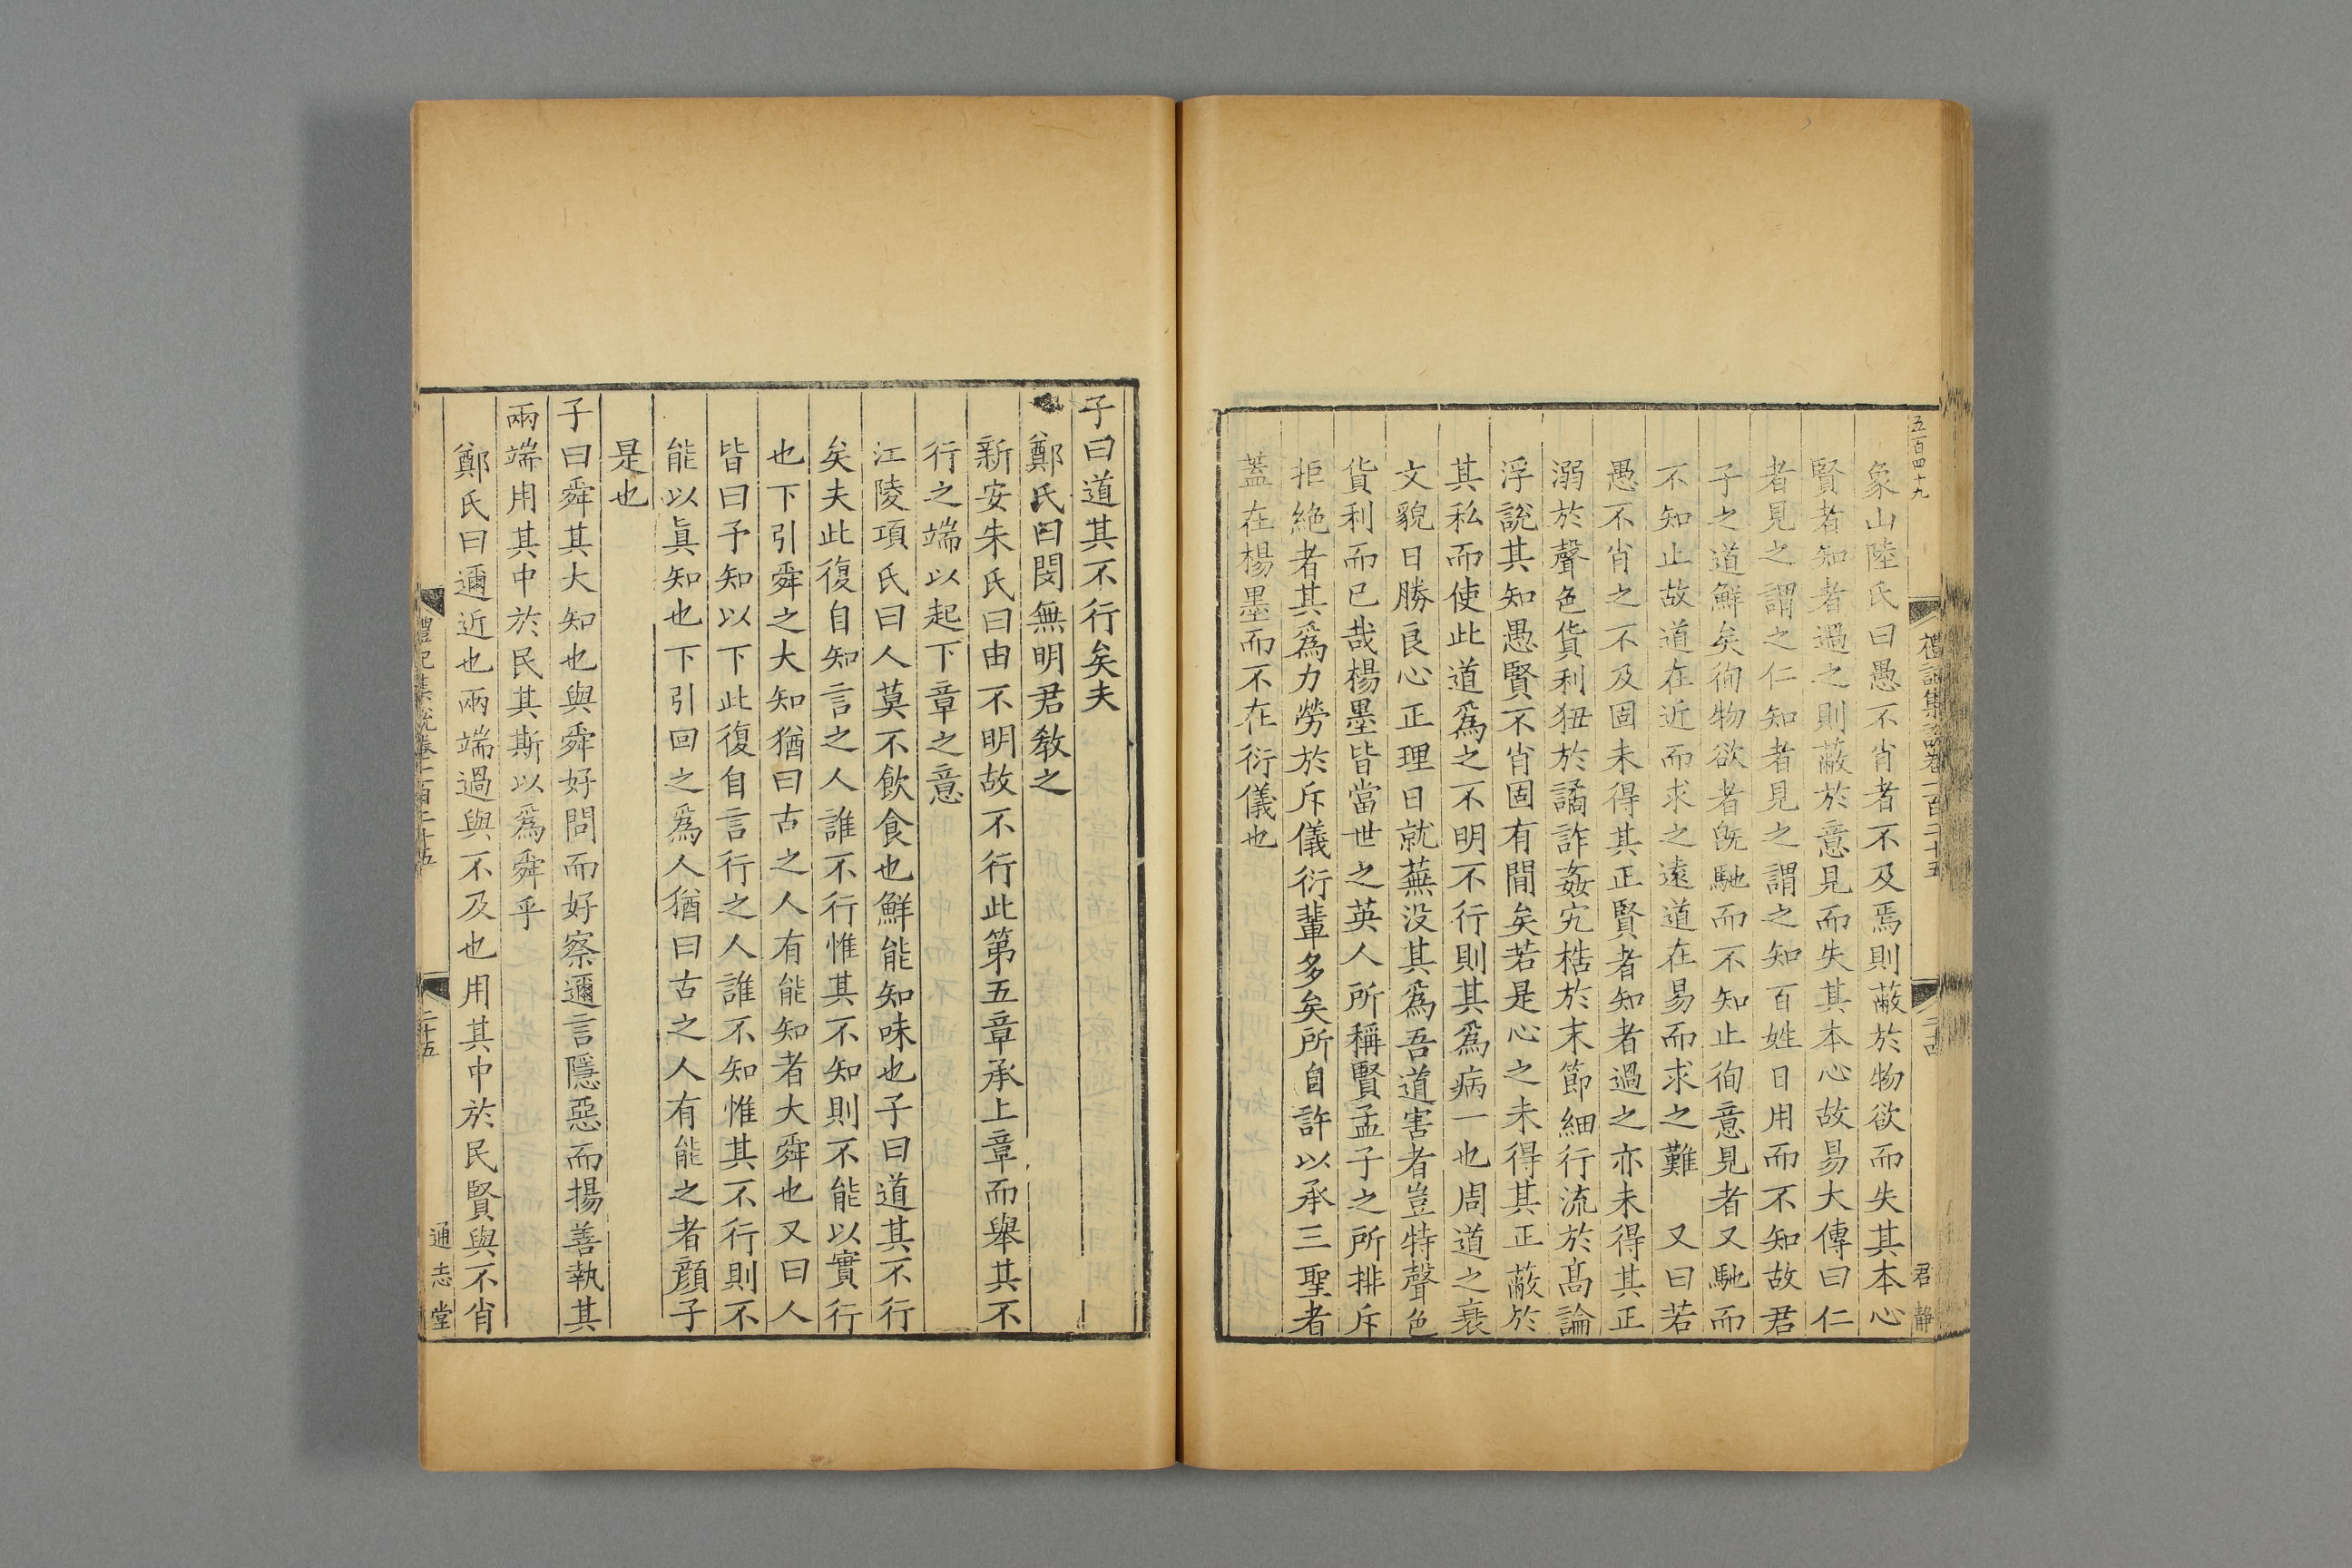 五百四十九
禮記集說卷一百二十五
二十四
君靜
象山陸氏曰愚不肖者不及焉則蔽於物欲而失其本心
賢者知者過之則蔽於意見而失其本心故易大傳曰仁
者見之謂之仁知者見之謂之知百姓日用而不知故君
子之道鮮矣徇物欲者旣馳而不知止徇意見者又馳而
不知止故道在近而求之遠道在易而求之難 又曰若
愚不肖之不及固未得其正賢者知者過之亦未得其正
溺於聲色貨利狃於譎詐姦宄梏於末節細行流於髙論
浮說其知愚賢不肖固有間矣若是心之未得其正蔽於
其私而使此道爲之不明不行則其爲病一也周道之衰
文貌日勝良心正理日就蕪没其爲吾道害者豈特聲色
貨利而已哉楊墨皆當世之英人所稱賢孟子之所排斥
拒絶者其爲力勞於斥儀衍輩多矣所自許以承三聖者
蓋在楊墨而不在衍儀也
子曰道其不行矣夫
鄭氏曰閔無明君教之
新安朱氏曰由不明故不行此第五章承上章而舉其不
行之端以起下章之意
江陵項氏曰人莫不飲食也鮮能知味也子曰道其不行
矣夫此復自知言之人誰不行惟其不知則不能以實行
也下引舜之大知猶曰古之人有能知者大舜也又曰人
皆曰予知以下此復自言行之人誰不知惟其不行則不
能以眞知也下引回之爲人猶曰古之人有能之者顔子
是也
子曰舜其大知也與舜好問而好察邇言隱惡而揚善執其
兩端用其中於民其斯以爲舜乎
鄭氏曰邇近也兩端過與不及也用其中於民賢與不肖
禮記集說卷一百二十五
二十五
通志堂